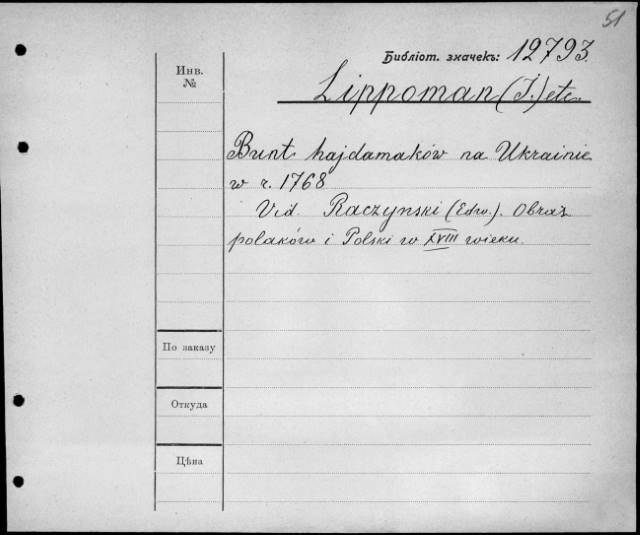 51
Библіот. значекъ: 12793.
Инв.
№
Lippoman (J.) etc.
Bunt hajdamaków na Ukrainie
w r. 1768
Vid. Raczynski (Edw.). Obraz
polaków i Polski w XVIII wieku.
По заказу
Откуда
Цѣна